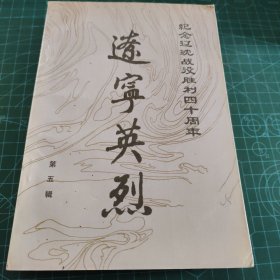 纪念辽沈战役胜利四十周年
遼寧英烈
第五輯